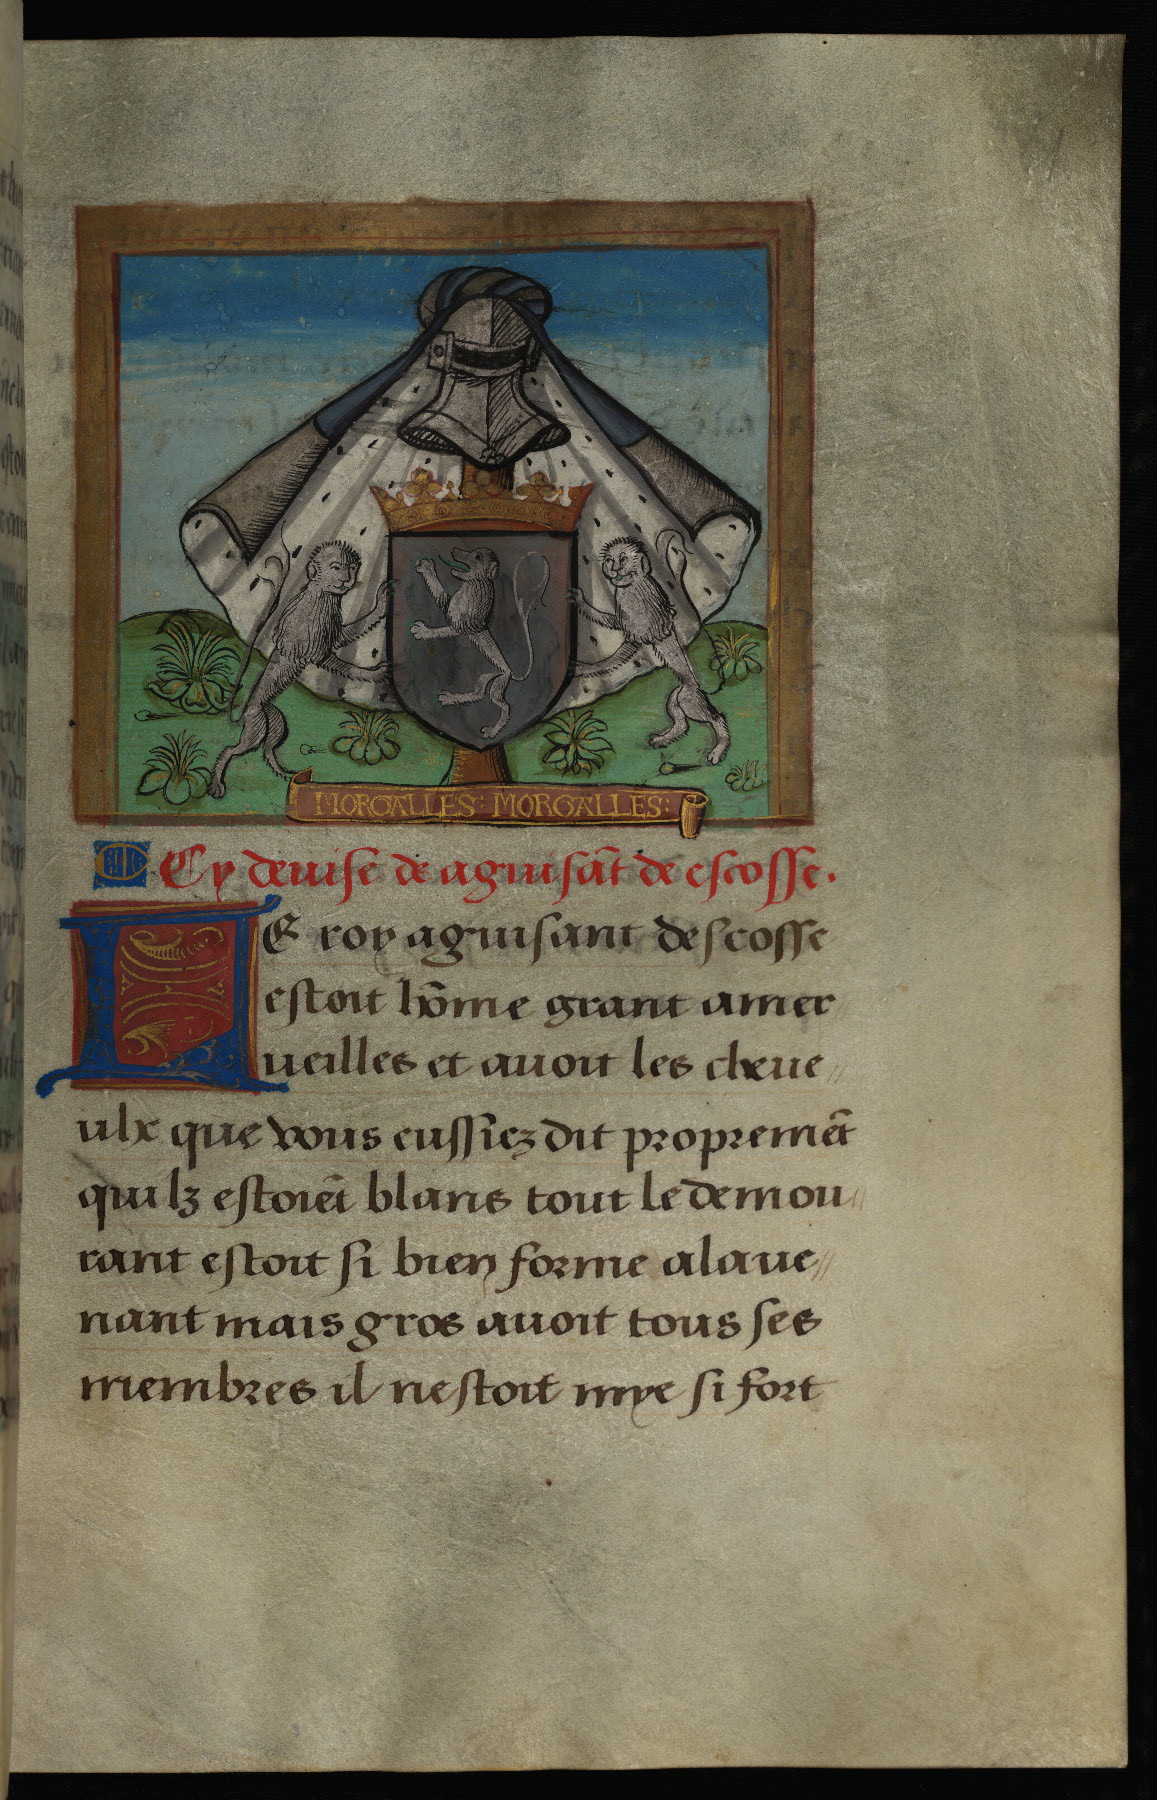 MORGALLES: MORGALLES:
Cy deuise de aguisãt de escosse.
LE roy aguisant descosse
estoit hõme grant amer
ueilles et auoit les cheue
ulx que vous eussiez dit propremẽt
quilz estoiẽt blans tout le demou
rant estoit si bien forme alaue
nant mais gros auoit tous ses
membres il nestoit mye si fort